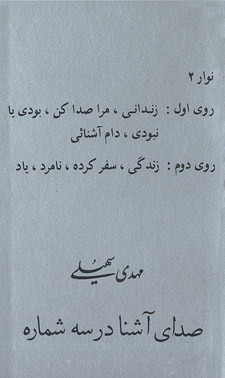 نوار ۲
روی اول : زندانی ، مرا صدا کن ، بودی یا
نبودی ، دام آشنائی
روی دوم : زندگی ، سفر کرده ، نامرد ، یاد
مهدی سهیلی
صدای آشنا در سه شماره